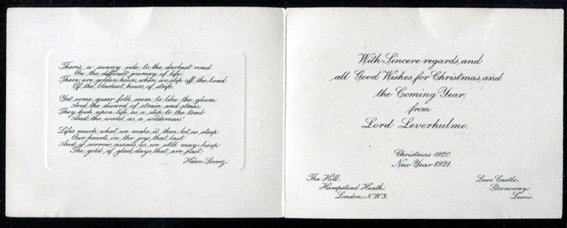 There's a sunny side to the darkest road
On the difficult journey of life.
There are golden hours when we slip off the load
Of the blackest hours of strife.
Yet some queer folk seem to like the gloom
And the discord of strain and stress,
They look upon life as a step to the tomb
And the world as a wilderness.
Life's much what we make it, then let us steep
Our hearts in the joys that last
And if sorrow assails us we still may keep
The gold of glad days that are past.
With Sincere regards and
all Good Wishes for Christmas and
the Coming Year,
from
Lord Leverhulme.
Christmas 1920.
New Year 1921.
The Hill,
Hampstead Heath,
London, N.W.3.
Lews Castle,
Stornoway,
Lewis.